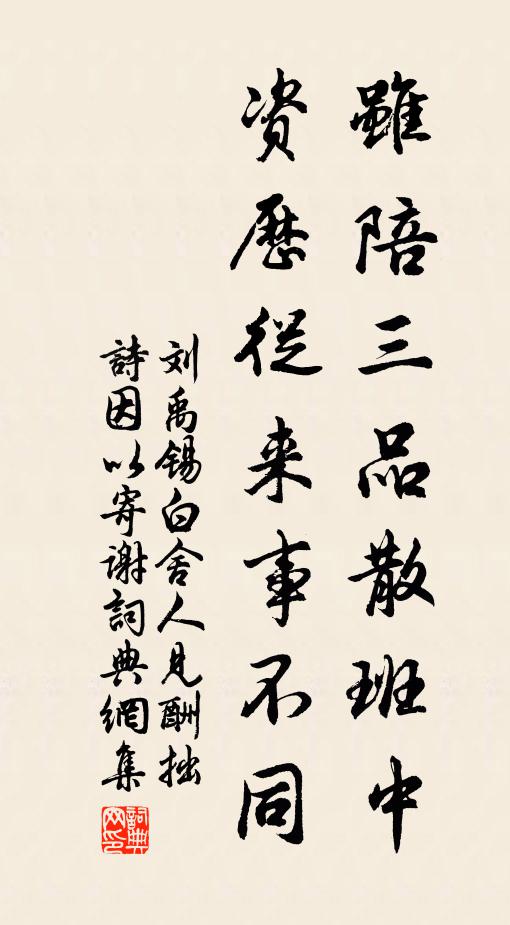 雖陪三品散班中
资歷從来事不同
刘禹錫白舍人見酬拙
詩因以寄谢詞典網集
詞典网印